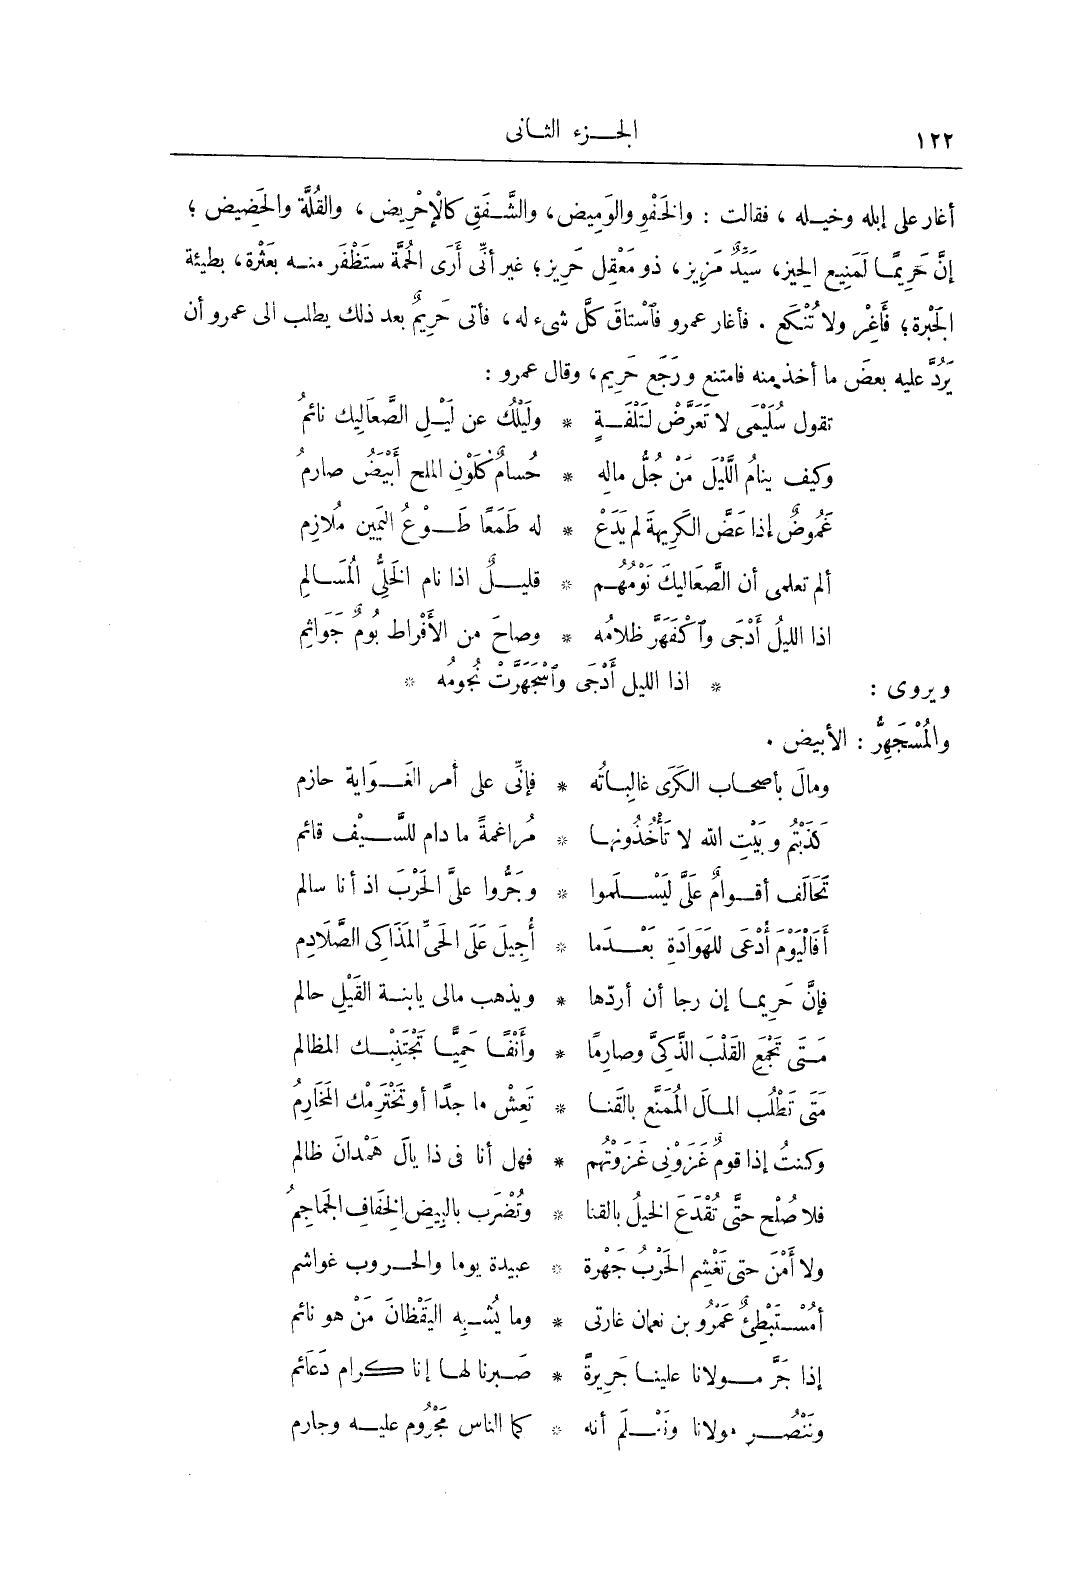 ١٢٢ الجزء الثانى
أغار على إبله وخيله ، فقالت : والخَفْوِ والوَمِيض، والشَّفَقِ كالْإحْرِيض ، والقُلَّة والحَضِيض ؛
إنّ حَرِيمًا لَمنِيع الحِيز، سَيّدٌ مَزِيز، ذو مَعْقِل حَرِيز؛ غير أنِّى أَرَى الحُمَّة ستَظْفَر منه بعَثْرة، بطيئة
الجَبْرة؛ فأَغِرْ ولا تُنْكَع . فأغار عمرو فٱسْتاق كلَّ شىء له ، فأتى حَرِيمٌ بعد ذلك يطلب الى عمرو أن
يَرُدَّ عليه بعضَ ما أخذ منه فامتنع ورَجَع حَرِيم، وقال عمرو :
تقول سُلَيْمَى لا تَعَرَّضْ لتَلْفَةٍ * ولَيْلُك عن لَيْلِ الصَّعَاليك نائمُ
وكيف ينامُ اللَّيلَ مَنْ جُلُّ مالِه * حُسامٌ كلَوْنِ الملح أَبْيَضُ صارمُ
غَمُوضٌ إذا عَضَّ الكَرِيهةَ لم يَدَعْ * له طَمَعًا طَوْعُ اليَمِين مُلازِم
ألم تعلمى أن الصَّعَاليكَ نَوْمُهُم * قليلٌ اذا نام الخَلِىُّ المُسَالِم
اذا الليلُ أَدْجَى وٱكْفَهَرَّ ظلامُه * وصاحَ من الأَفْراط بُومٌ جَوَاثِم
ويروى : * اذا الليل أَدْجَى وٱسْجَهَرَّتْ نُجُومُه *
والمُسْجَهِرُّ : الأبيض .
ومالَ بأصحاب الكَرَى غالِباتُه * فإنِّى على أمر الغَوَاية حازم
كَذَبْتُم وبَيْتِ الله لا تَأْخُذُونها * مُراغمةً ما دام للسَّيْف قائم
تَحَالَف أقوامٌ عَلَىَّ ليَسْلَموا * وجَرُّوا علىَّ الحَرْبَ اذ أنا سالم
أَفَالْيَوْمَ أُدْعَى للهَوَادَةِ بَعْدَما * أُجِيلَ عَلَى الحَىِّ المَذَاكِى الصَّلَادِم
فإنَّ حَرِيما إن رجا أن أردّها * ويذهب مالى يابنة القَيْلِ حالم
مَتَى تَجْمَعِ القَلْبَ الذَّكِىَّ وصارِمًا * وأَنْفًا حَمِيًّا تَجْتَنِبْك المظالم
مَتَى تَطْلُب المالَ المُمَنَّع بالقَنا * تَعِشْ ماجدًا أو تَخْتَرِمْك المَخَارِمُ
وكنتُ إذا قومٌ غَزَوْنِى غَزَوْتُهم * فهل أنا فى ذا يالَ هَمْدانَ ظالم
فلا صُلْح حتَّى تُقْدَعَ الخيلُ بالقنا * وتُضْرَب بالبِيضِ الخِفَافِ الجَماجِمُ
ولا أَمْنَ حتى تَغْشِم الحَرْبُ جَهْرة * عبيدة يوما والحروب غواشم
أمُسْتَبْطِئٌ عَمْرُو بن نعمان غارتى * وما يُشْبِه اليَقْظانَ مَنْ هو نائم
إذا جَرَّ مولانا علينا جَرِيرةً * صَبرنا لها إنا كرام دَعَائم
ونَنْصُر مولانا ونَعْلَم أنه * كما الناس مَجْرُوم عليه وجارم